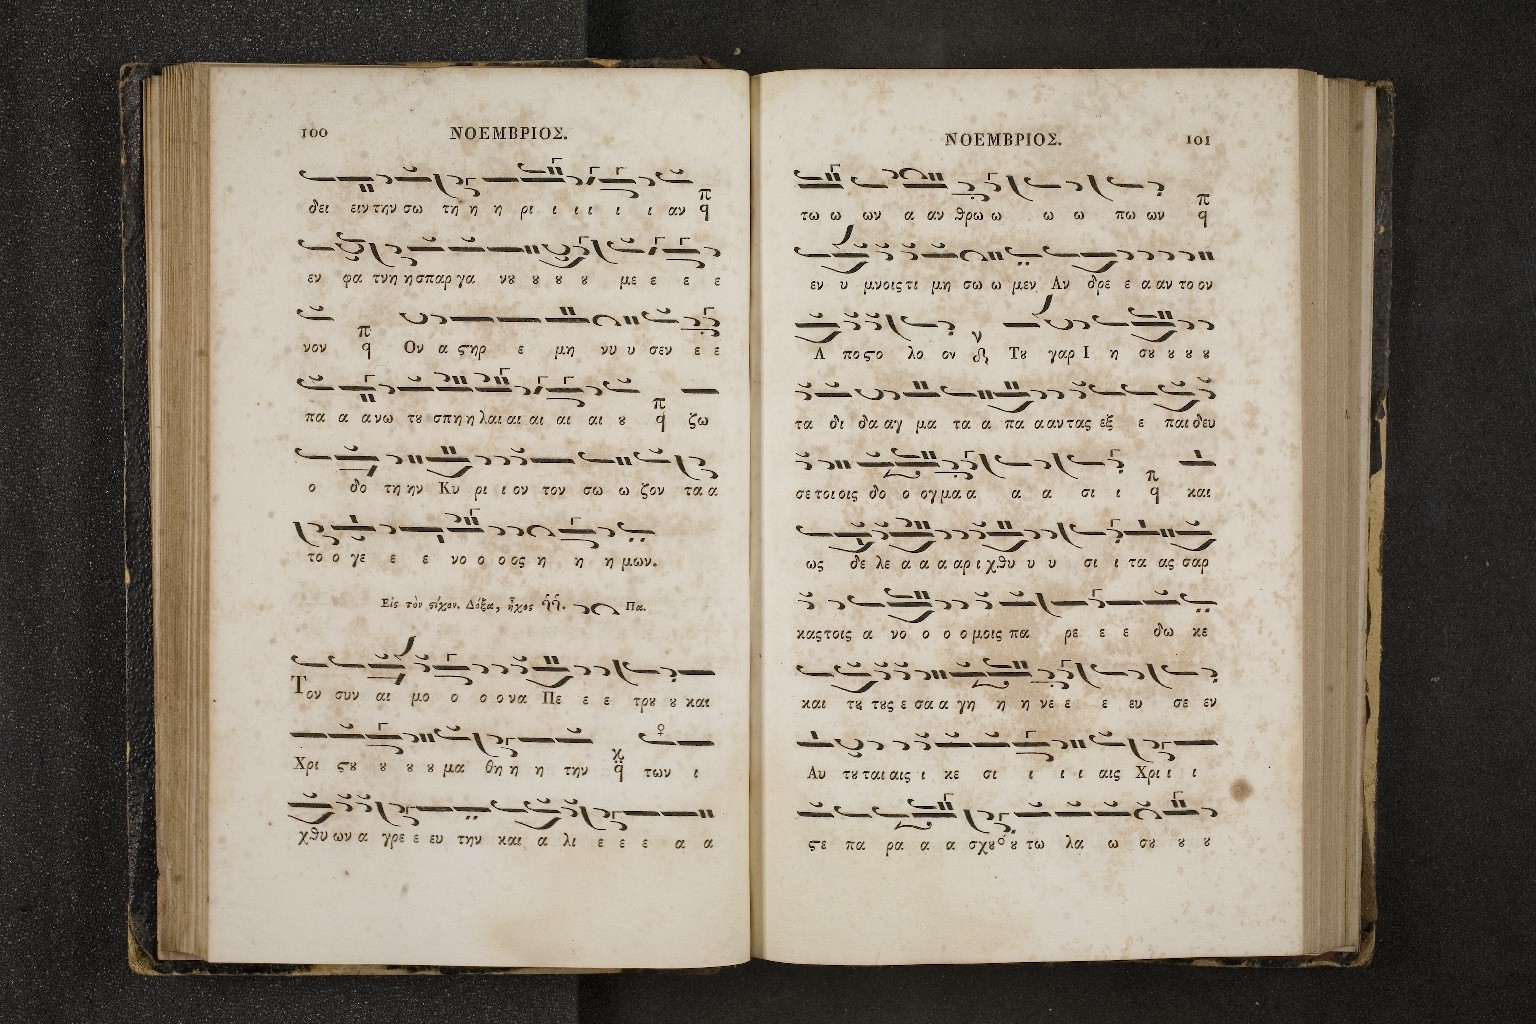 100
ΝΟΕΜΒΡΙΟΣ.
δει ειν την σω τη η η ρι ι ι ι ι ι αν π q
εν φα τνη η σπαρ γα νȣ ȣ ȣ ȣ με ε ε ε
νον π q Ον α ςηρ ε μη νυ υ σεν ε ε
πα α α νω τȣ σπη η λαι αι αι αι αι ȣ π q ζω
ο δο τη ην Κυ ρι ι ον τον σω ω ζον τα α
το ο γε ε ε νο ο ο ος η η η μων.
Εἰς τὸν ςίχον. Δόξα, ἦχος Πα.
Τον συν αι μο ο ο ο να Πε ε ε τρȣ ȣ και
Χρι ςȣ ȣ ȣ ȣ μα θη η η την q των ι
χθυ ων α γρε ε ευ την και α λι ε ε ε α α
ΝΟΕΜΒΡΙΟΣ.
101
τω ω ων α αν θρω ω ω ω πω ων π q
εν υ μνοις τι μη σω ω μεν Αν δρε ε α αν το ον
Α πο ςο λο ον Τȣ γαρ Ι η σȣ ȣ ȣ ȣ
τα δι δα αγ μα τα α πα α αν τας εξ ε παι δευ
σε τοι οις δο ο ογ μα α α α σι ι π q και
ως δε λε α α α αρ ι χθυ υ υ σι ι τα ας σαρ
κας τοις α νο ο ο ο μοις πα ρε ε ε δω κε
και τȣ τȣς ε σα α γη η η νε ε ε ευ σε εν
Αυ τȣ ται αις ι κε σι ι ι ι αις Χρι ι ι
ςε πα ρα α α σχȣ ȣ τω λα ω σȣ ȣ ȣ